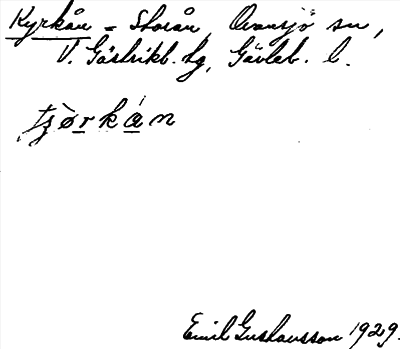 Kyrkån = Storån, Ovansjö sn,
V. Gästrikl. hg, Gävleb. l.
tjø̀rkán
Emil Gustavsson 1929.